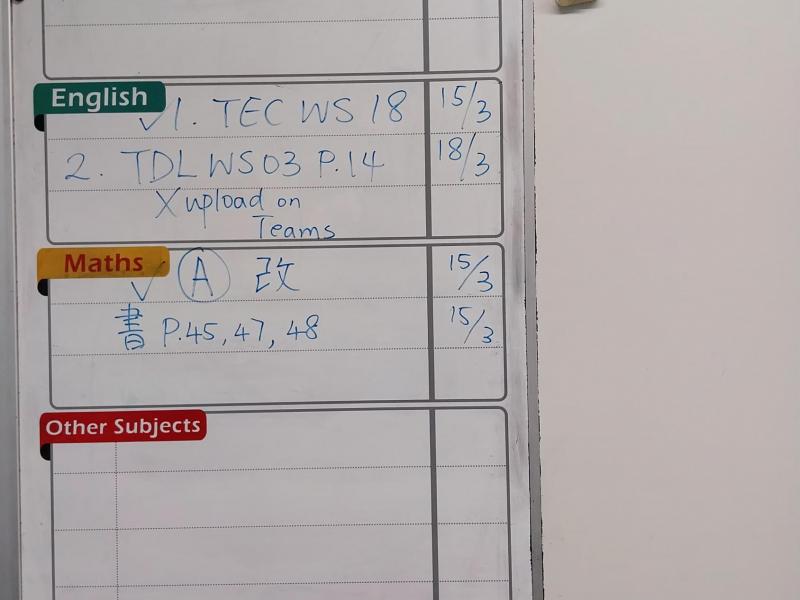 English
✓1. TEC WS 18 15/3
2. TDL WS03 P.14 18/3
X upload on
Teams
Maths
✓ Ⓐ 改 15/3
書 P.45, 47, 48 15/3
Other Subjects